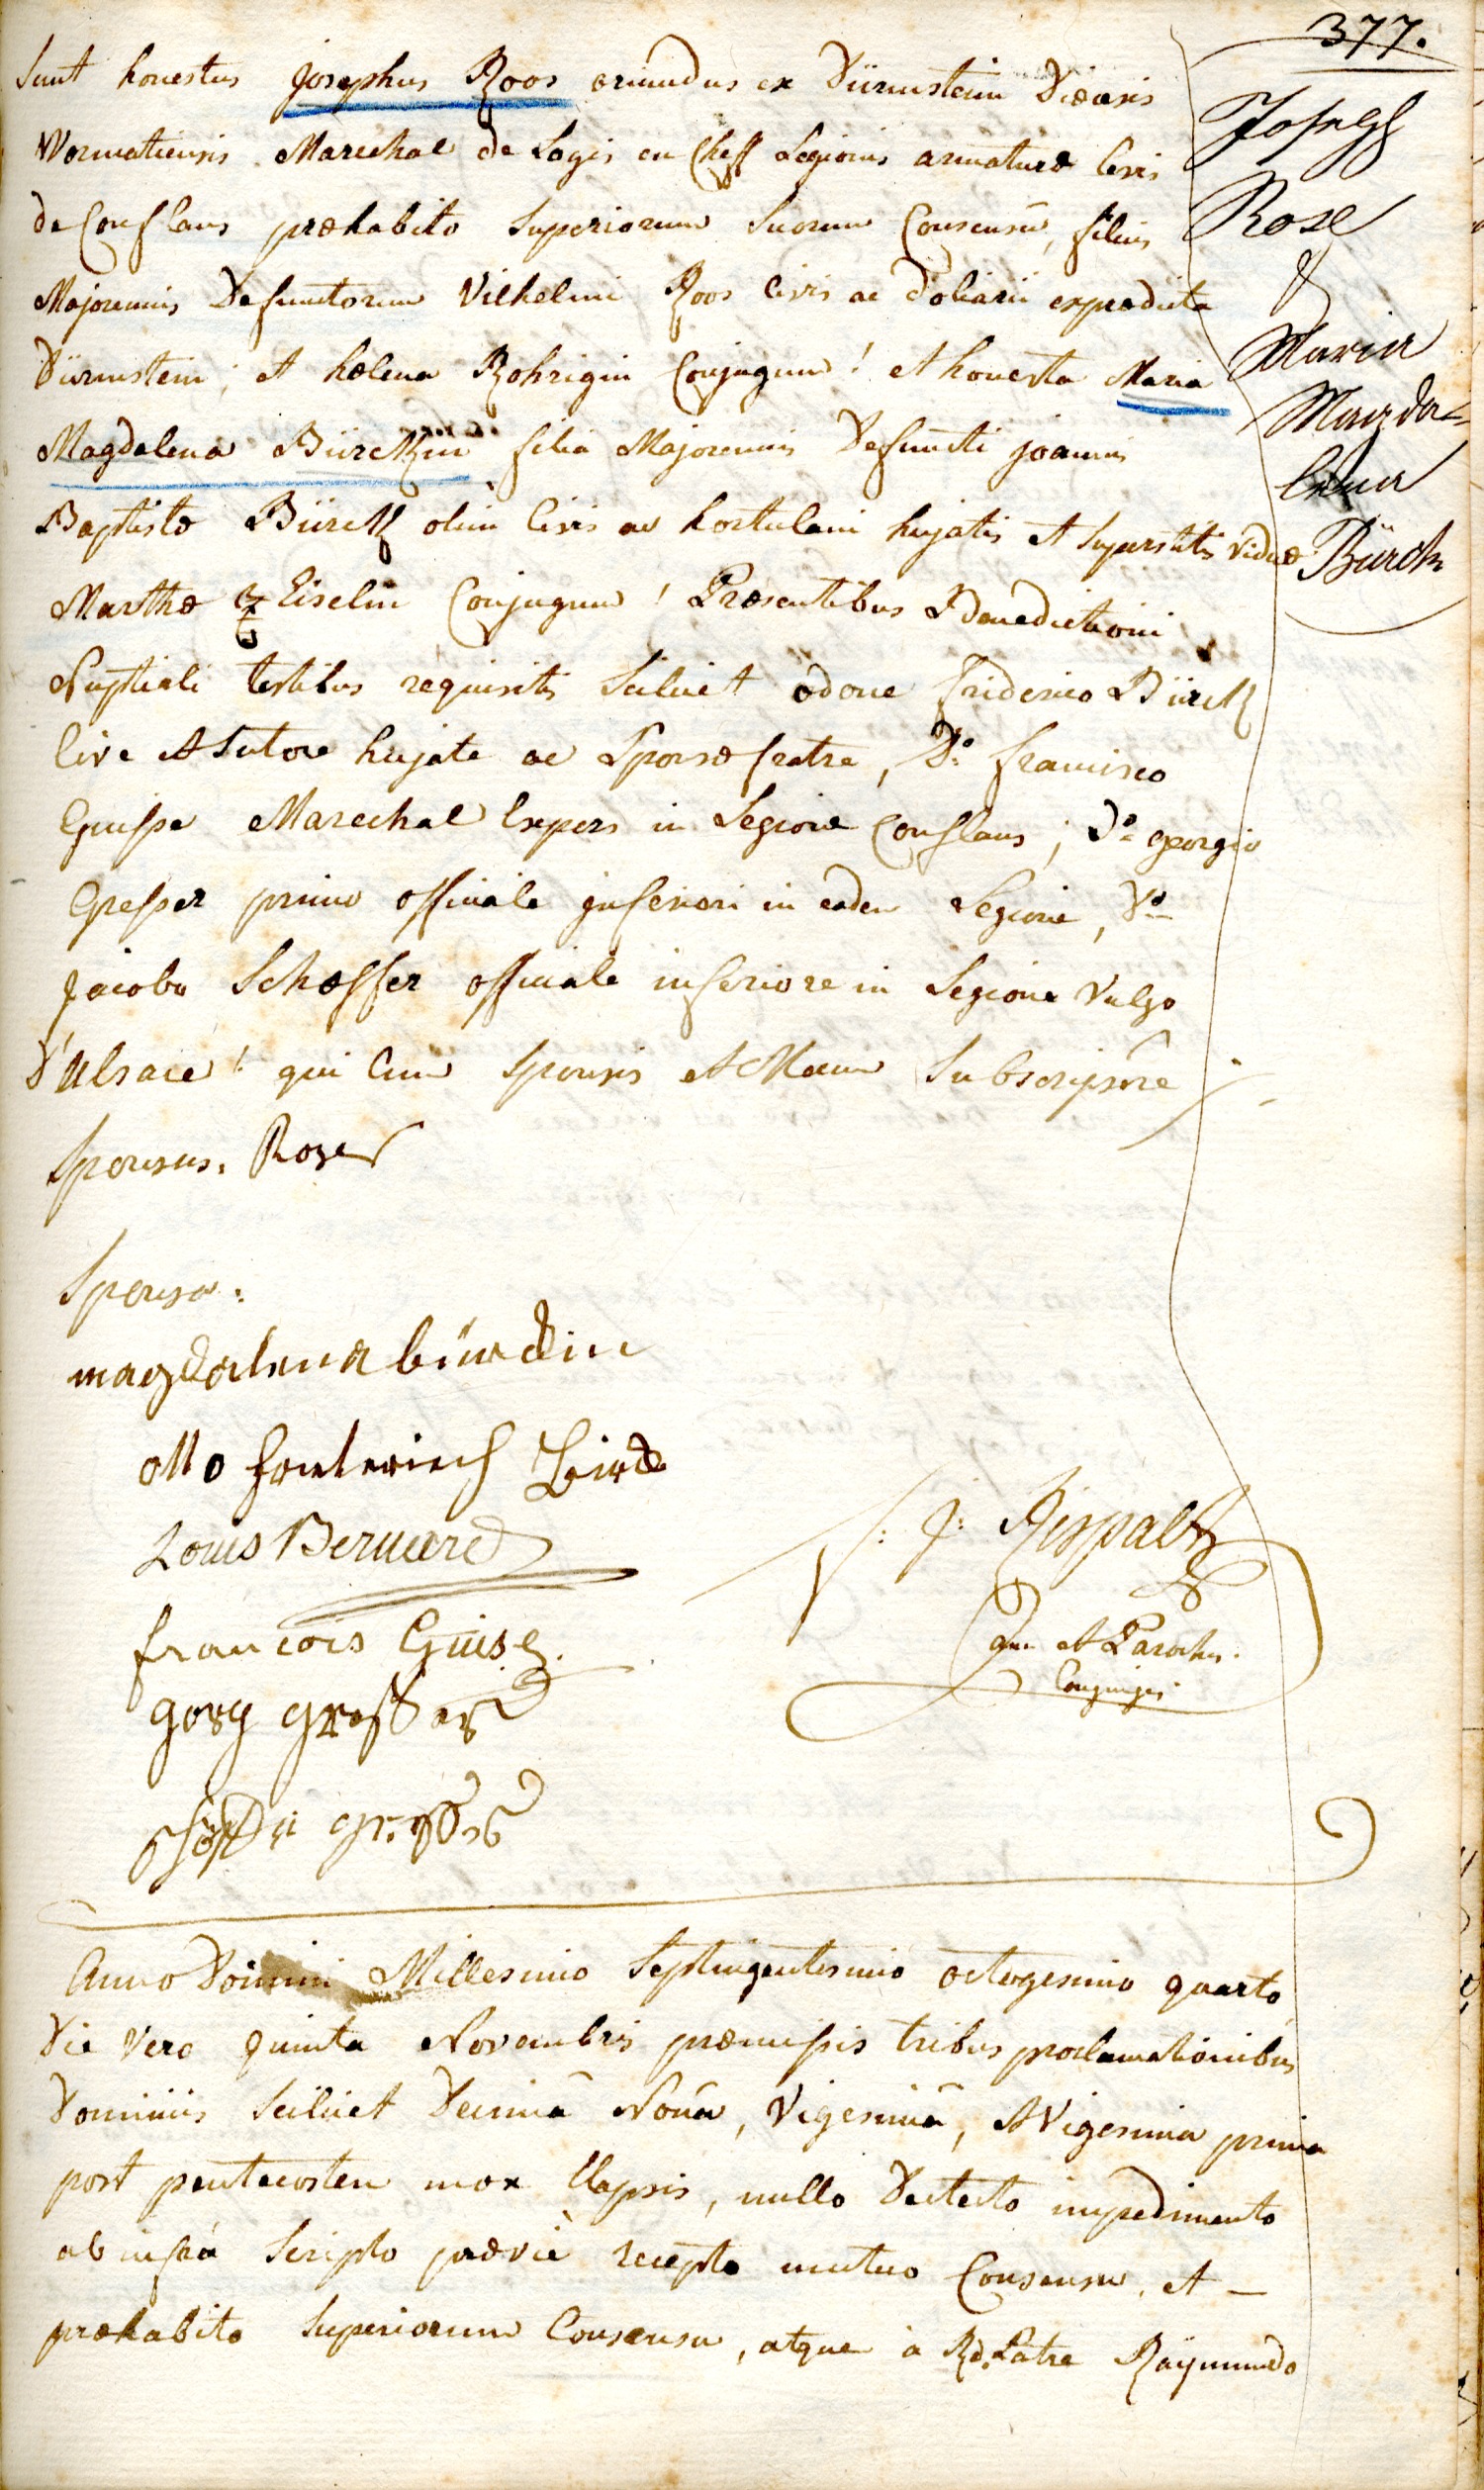 377.
Sunt honestus Josephus Roos oriundus ex Dürmstein Diœcesis
Wormatiensis Marechal de Logis en Cheff Legionis armaturæ levis
de Conflans præhabito Superiorum Suorum Consensu, filius
Majorennis Defunctorum Vilhelmi Roos Civis ac doliarii ex prædicta
Dürmstein; et helena Rohrigin Conjugum! et honesta Maria
Magdalena Bürckin filia Majorennis Defuncti joannis
Baptistæ Bürck olim Civis ac hortulani hujatis et Superstitis viduæ
Marthæ Eiselin Conjugum! Præsentibus Benedictioni
Nuptiali testibus requisitis Scilicet odone friderico Bürck
Cive et Sutore hujate ac Sponsæ fratre, D°: francisco
Guisse Marechal Expers in Legione Conflans; D° georgio
Gresser primo officiale inferiori in eadem Legione, D°
jacobo Schæffer officiale inferiore in Legione vulgo
D'Alsace! qui Cum Sponsis et Mecum Subscripsêre
Joseph
Rose
&
Maria
Magda=
lena
Bürck
Sponsus. Roze
Sponsa:
magdalena bürckin
otto friderich Birck
Louis Bernard
francois Guise
Gorg gresser
J: Rispalt
et Parochus
Anno Domini Millesimo Septingentesimo octogesimo quarto
Die vero quinta Novembris præmissis tribus proclamationibus
Dominicis Scilicet Decimâ Nonâ, Vigesimâ, et Vigesima prima
post pentecosten mox Elapsis, nullo Detecto impedimento
ab infrá Scripto prævié recepto mutuo Consensu, et —
præhabito Superiorum Consensu, atque à Rd. Patre Raÿmundo